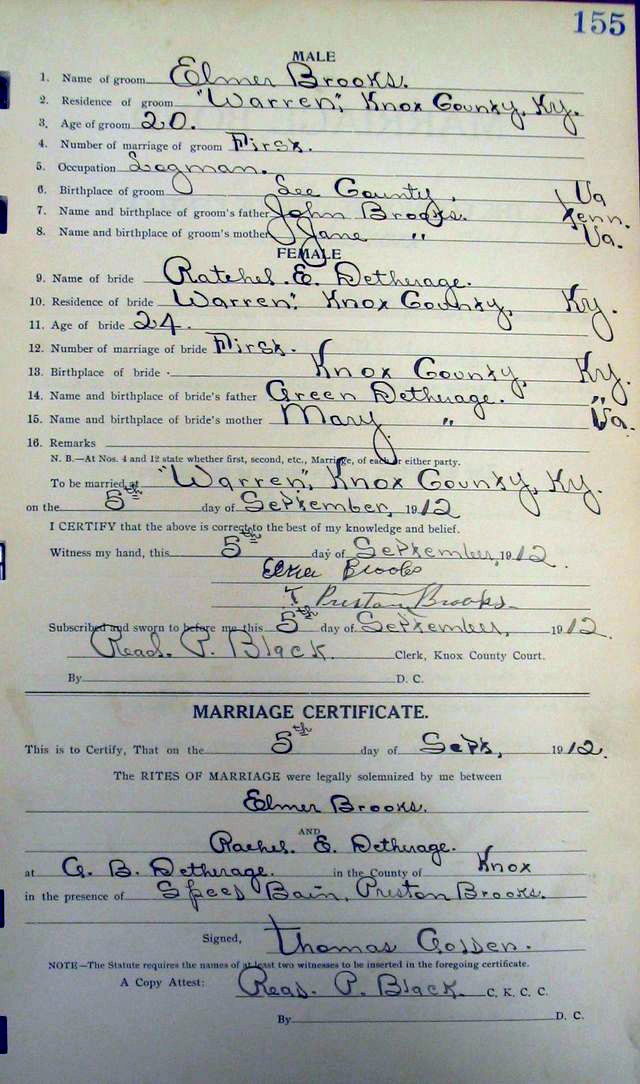 155
MALE
1. Name of groom Elmer Brooks.
2. Residence of groom "Warren", Knox County, Ky.
3. Age of groom 20.
4. Number of marriage of groom First.
5. Occupation Logman.
6. Birthplace of groom Lee County, Va
7. Name and birthplace of groom's father John Brooks. Tenn.
8. Name and birthplace of groom's mother Jane " Va.
FEMALE
9. Name of bride Ratchel. E. Detherage.
10. Residence of bride Warren". Knox County, Ky.
11. Age of bride 24.
12. Number of marriage of bride First.
13. Birthplace of bride Knox County, Ky.
14. Name and birthplace of bride's father Green Detherage. "
15. Name and birthplace of bride's mother Mary " Va.
16. Remarks
N. B.—At Nos. 4 and 12 state whether first, second, etc., Marriage, of each or either party.
To be married at "Warren", Knox County, Ky.
on the 5th day of September, 1912
I CERTIFY that the above is correct to the best of my knowledge and belief.
Witness my hand, this 5th day of September, 1912.
Brooks
Preston Brooks
Subscribed and sworn to before me this 5th day of September, 1912.
Read. P. Black. Clerk, Knox County Court.
By D. C.
MARRIAGE CERTIFICATE.
This is to Certify, That on the 5th day of Sept, 1912.
The RITES OF MARRIAGE were legally solemnized by me between
Elmer Brooks.
AND
Rachel. E. Detherage.
at G. B. Detherage. in the County of Knox
in the presence of Bain, Preston Brooks.
Signed, Thomas
NOTE—The Statute requires the names of at least two witnesses to be inserted in the foregoing certificate.
A Copy Attest: Read. P. Black. C. K. C. C.
By D. C.